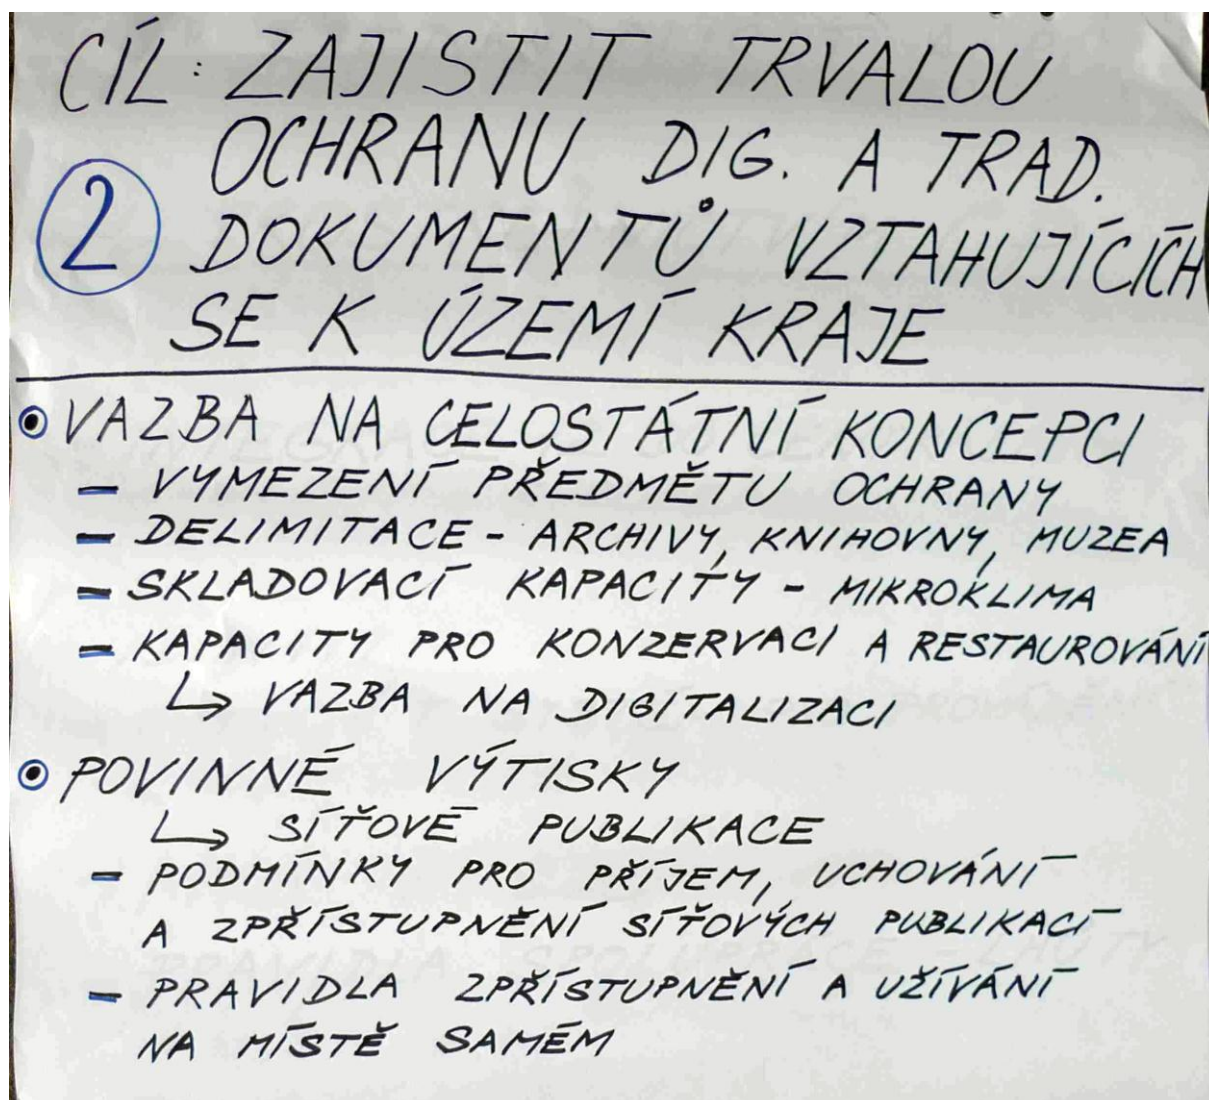 CÍL: ZAJISTIT TRVALOU
OCHRANU DIG. A TRAD.
2 DOKUMENTŮ VZTAHUJÍCÍCH
SE K ÚZEMÍ KRAJE
VAZBA NA CELOSTÁTNÍ KONCEPCI
- VYMEZENÍ PŘEDMĚTU OCHRANY
- DELIMITACE - ARCHIVY, KNIHOVNY, MUZEA
- SKLADOVACÍ KAPACITY - MIKROKLIMA
- KAPACITY PRO KONZERVACI A RESTAUROVÁNÍ
↳ VAZBA NA DIGITALIZACI
POVINNÉ VÝTISKY
↳ SÍŤOVÉ PUBLIKACE
- PODMÍNKY PRO PŘÍJEM, UCHOVÁNÍ
A ZPŘÍSTUPNĚNÍ SÍŤOVÝCH PUBLIKACÍ
- PRAVIDLA ZPŘÍSTUPNĚNÍ A UŽÍVÁNÍ
NA MÍSTĚ SAMÉM